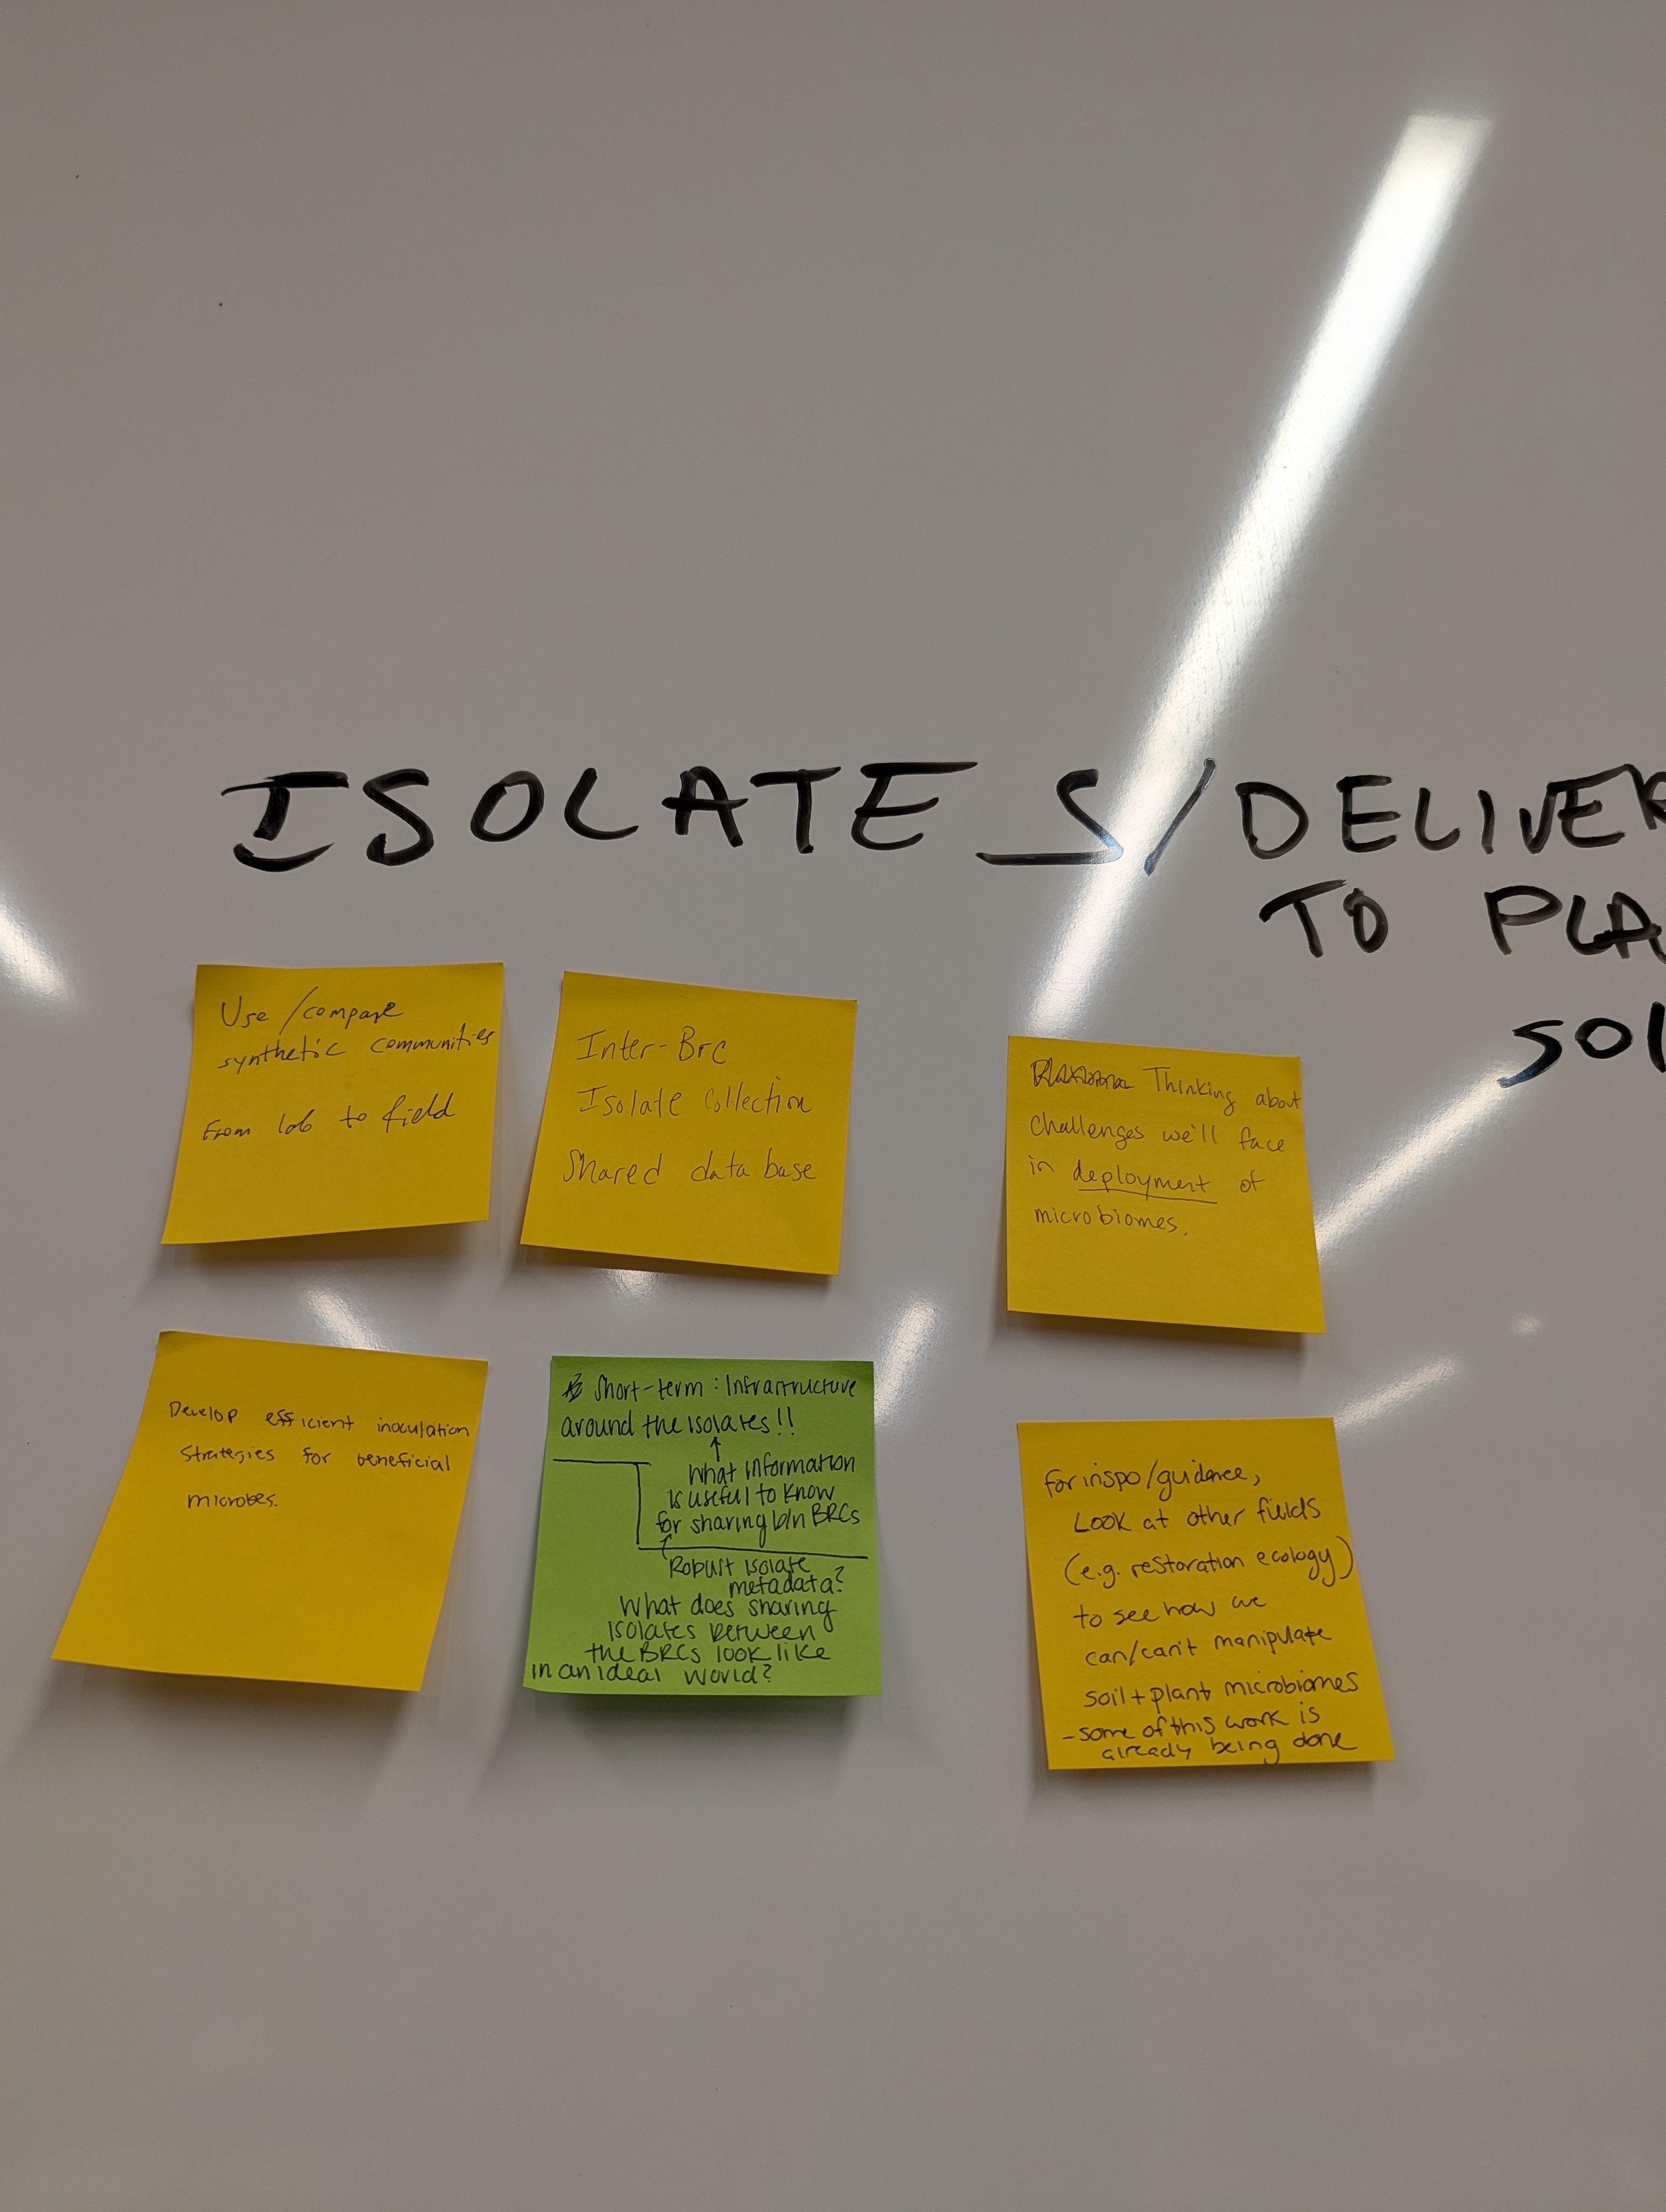 ISOLATES/DELIVER
TO PLA
SOI
Use/compare
synthetic communities
From lab to field
Inter-Brc
Isolate Collection
Shared database
Thinking about
challenges we'll face
in deployment of
microbiomes.
Develop efficient inoculation
strategies for beneficial
microbes.
Short-term: Infrastructure
around the isolates!!
↑
What information
is useful to know
for sharing b/n BRCs
Robust isolate
metadata?
What does sharing
isolates between
the BRCs look like
in an ideal world?
for inspo/guidance,
Look at other fields
(e.g. restoration ecology)
to see how we
can/can't manipulate
soil + plant microbiomes
- some of this work is
already being done